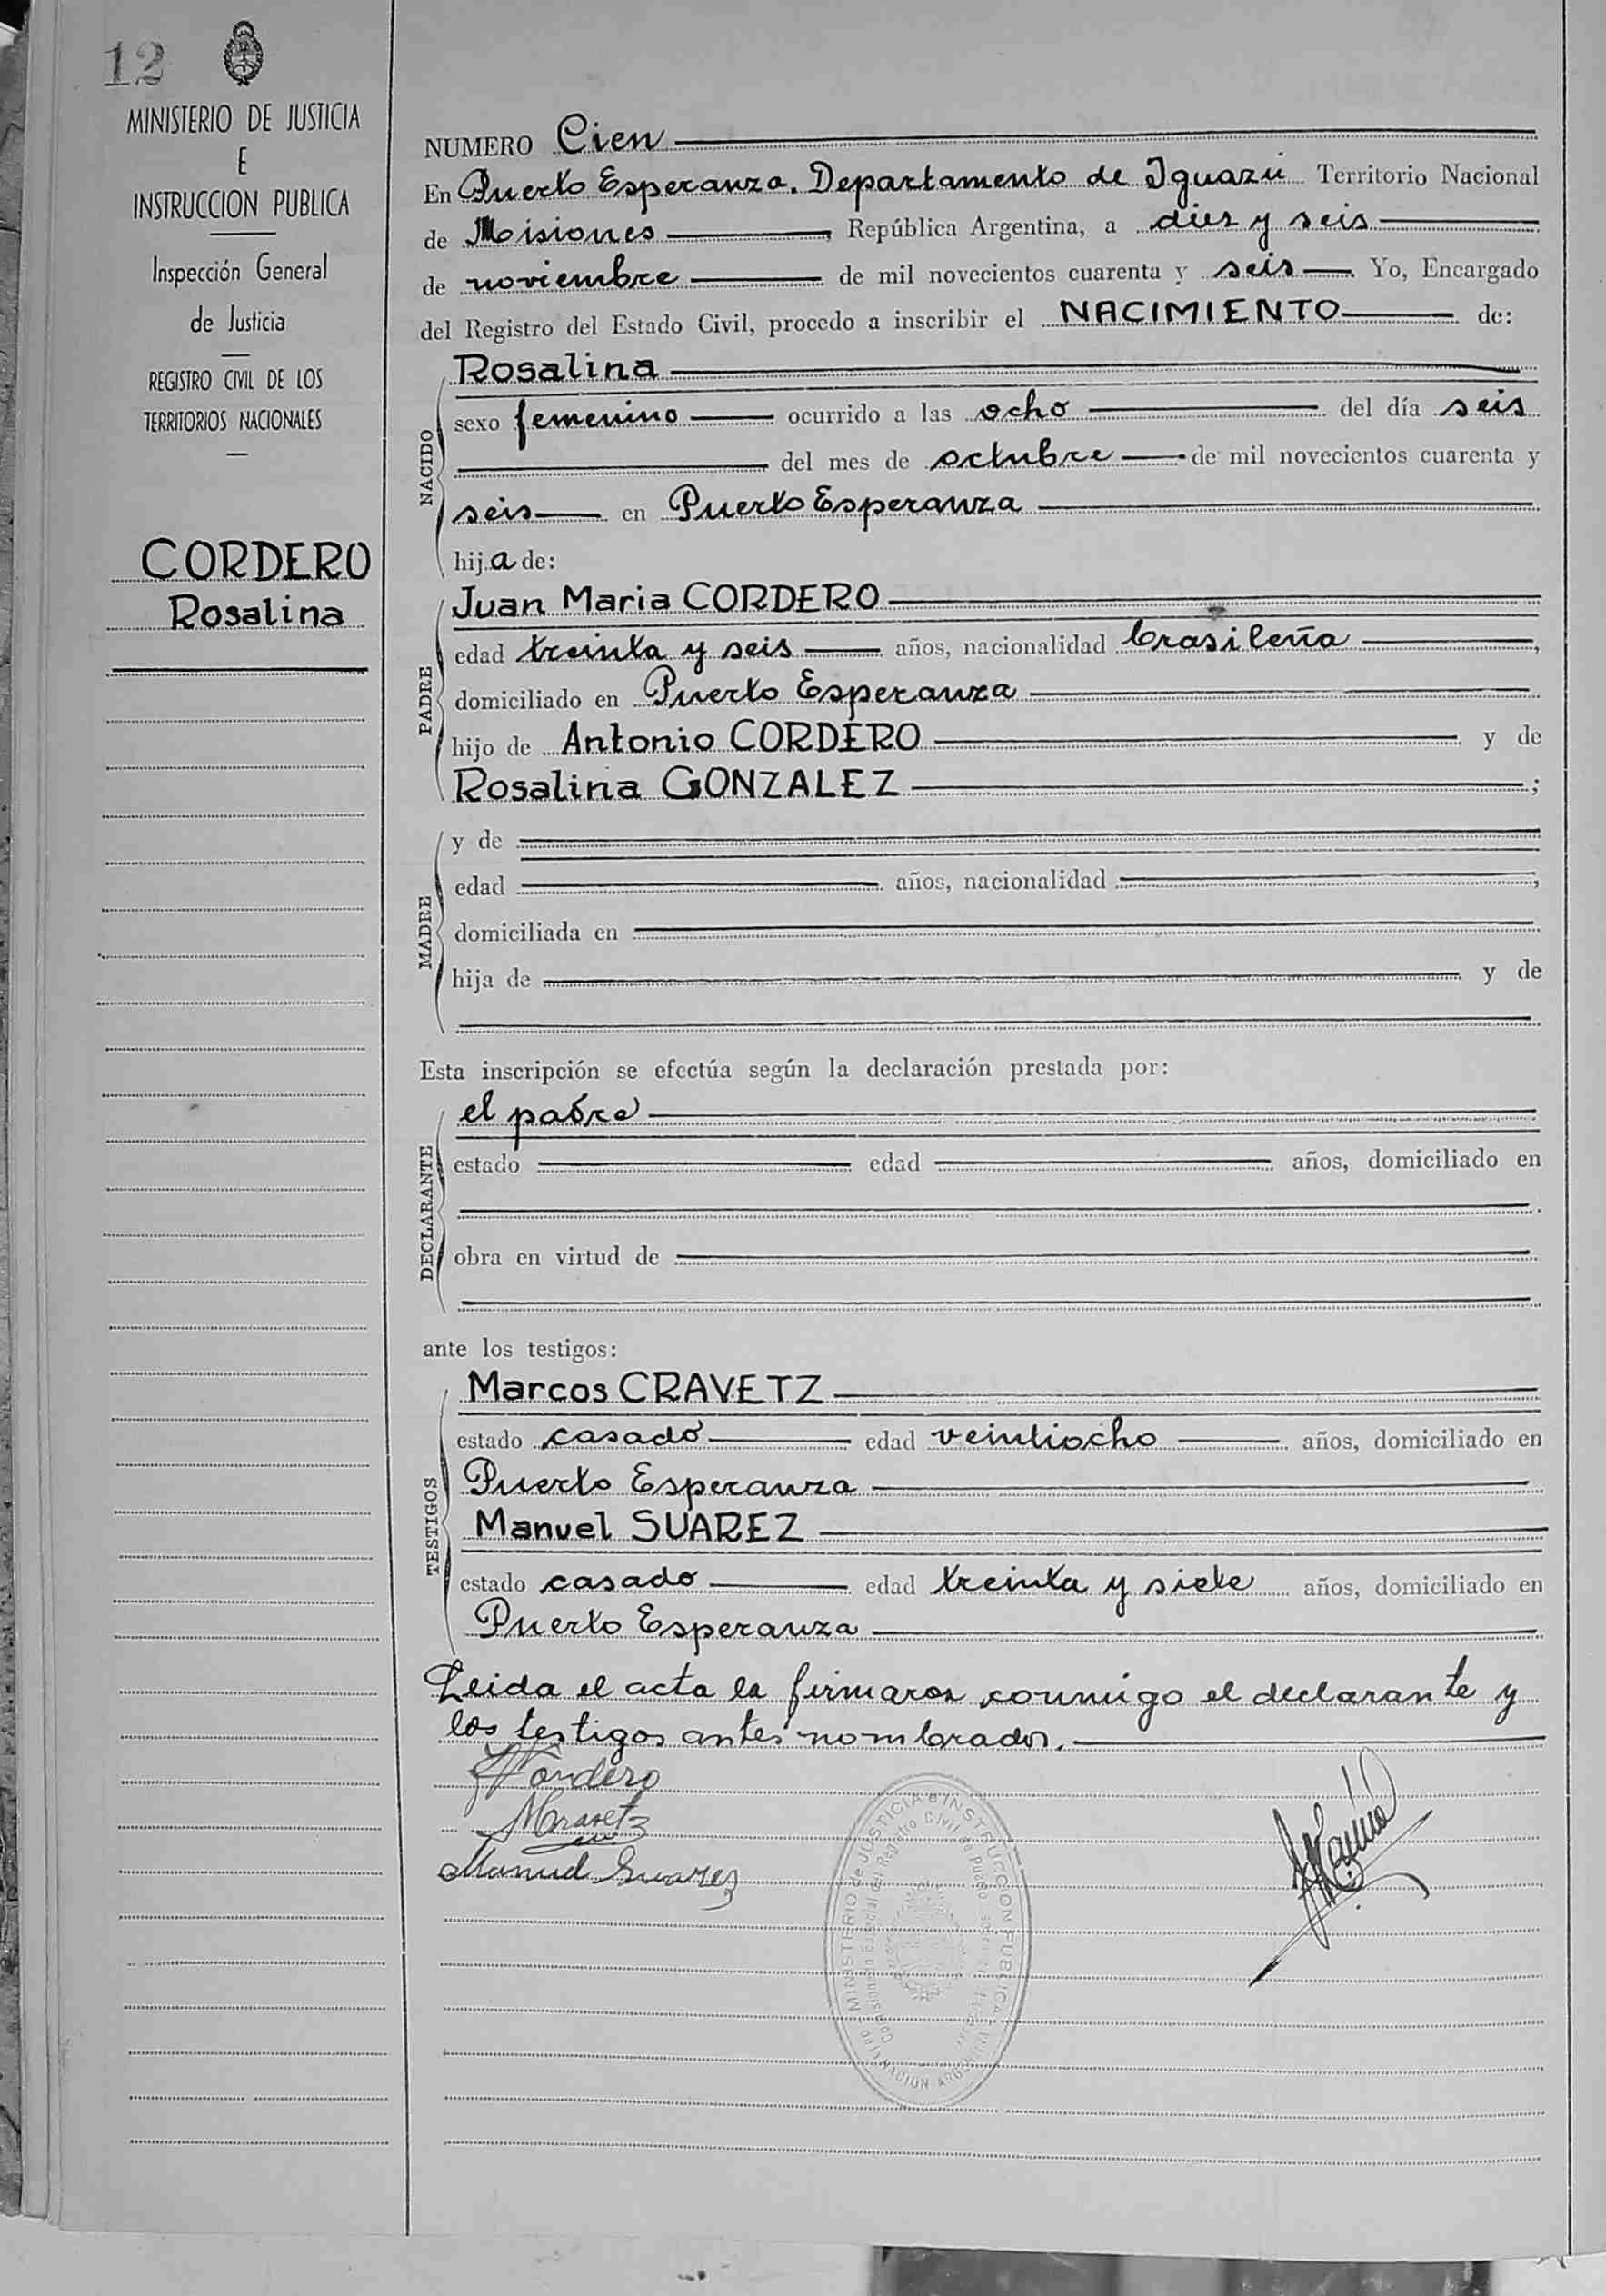 12
MINISTERIO DE JUSTICIA
E
INSTRUCCION PUBLICA
Inspección General
de Justicia
REGISTRO CIVIL DE LOS
TERRITORIOS NACIONALES
CORDERO
Rosalina
NUMERO Cien
En Puerto Esperanza. Departamento de Iguazú Territorio Nacional
de Misiones, República Argentina, a diez y seis
de noviembre de mil novecientos cuarenta y seis. Yo, Encargado
del Registro del Estado Civil, procedo a inscribir el NACIMIENTO de:
NACIDO
Rosalina
sexo femenino ocurrido a las ocho del día seis
del mes de octubre de mil novecientos cuarenta y
seis en Puerto Esperanza
hija de:
PADRE
Juan Maria CORDERO
edad treinta y seis años, nacionalidad brasileña,
domiciliado en Puerto Esperanza
hijo de Antonio CORDERO y de
Rosalina GONZALEZ;
MADRE
y de
edad años, nacionalidad,
domiciliada en
hija de y de
Esta inscripción se efectúa según la declaración prestada por:
DECLARANTE
el padre
estado edad años, domiciliado en
obra en virtud de
ante los testigos:
TESTIGOS
Marcos CRAVETZ
estado casado edad veintiocho años, domiciliado en
Puerto Esperanza
Manuel SUAREZ
estado casado edad treinta y siete años, domiciliado en
Puerto Esperanza
Leida el acta la firmaron conmigo el declarante y
los testigos antes nombrados.
Cordero
MCravetz
Manuel Suarez
MINISTERIO de JUSTICIA e INSTRUCCION PUBLICA
NACION
del Registro Civil de